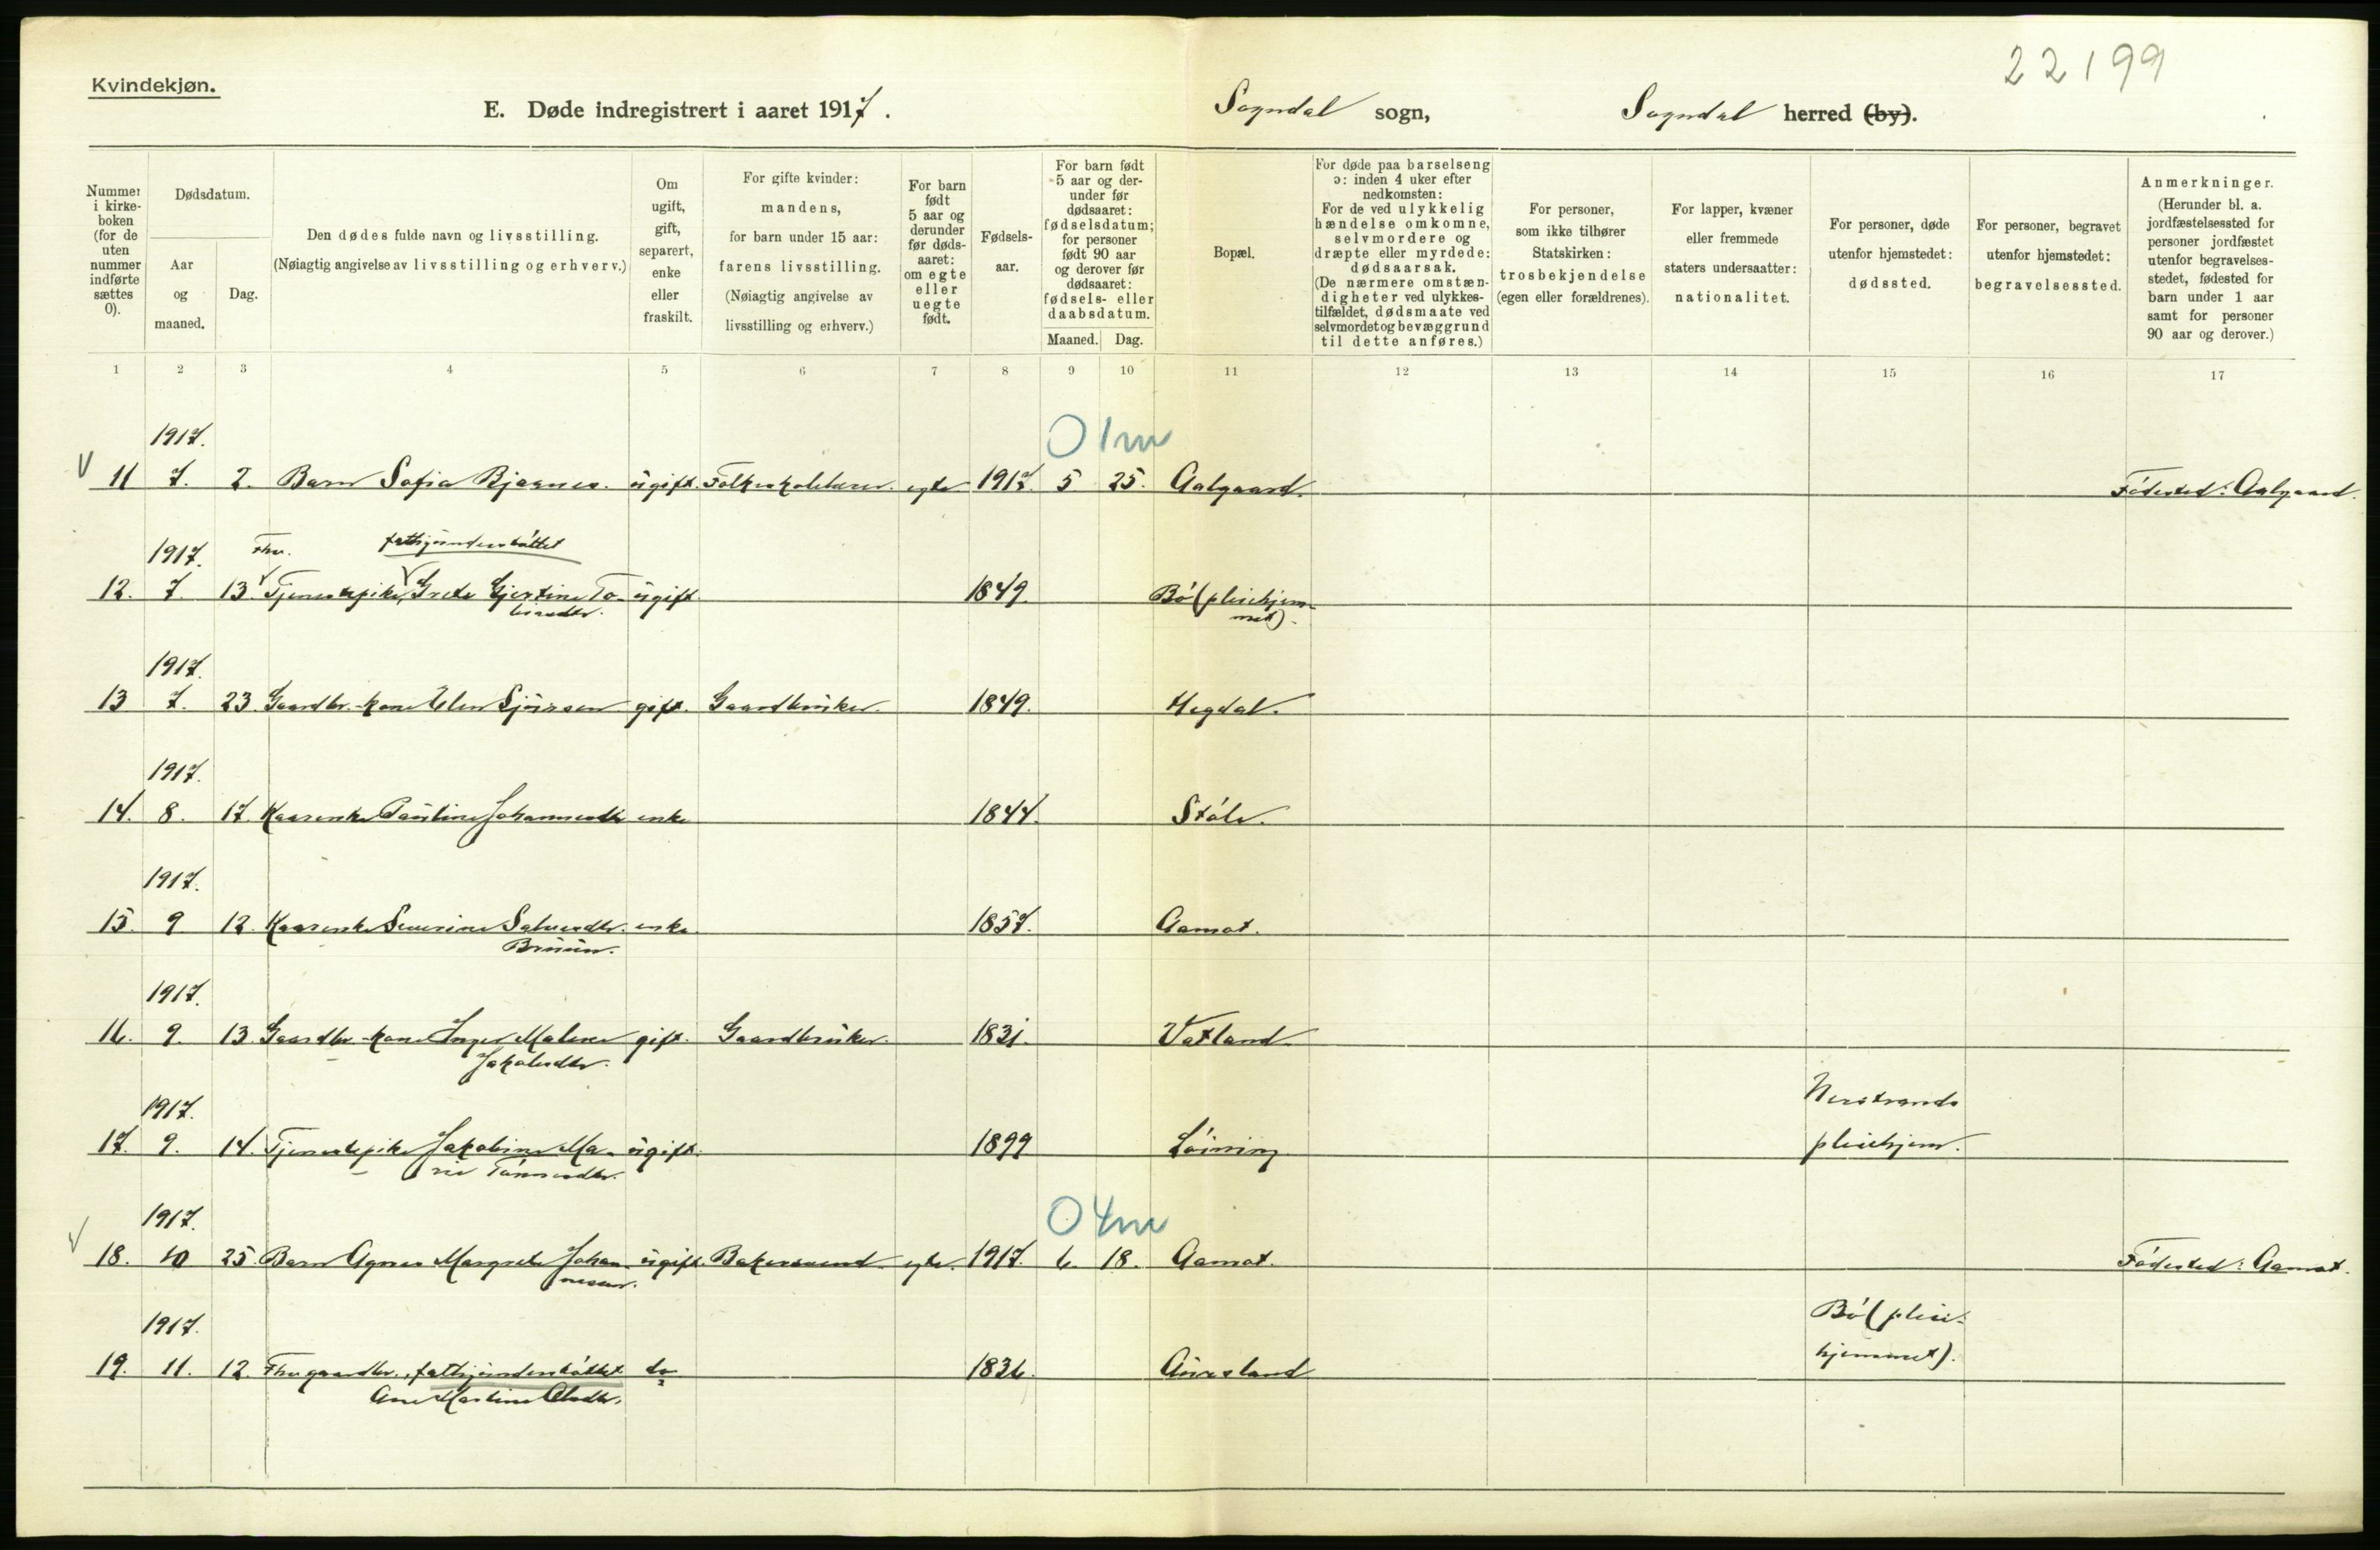 22199
Kvindekjøn.
E. Døde indregistrert i aaret 1917. Sogndal sogn, Sogndal herred (by).
Nummer i kirke-boken (for de uten nummer indførte sættes 0).
Dødsdatum.
Aar og maaned.
Dag.
Den dødes fulde navn og livsstilling.
(Nøiagtig angivelse av livsstilling og erhverv.)
Om ugift, gift, separert, enke eller fraskilt.
For gifte kvinder: mandens, for barn under 15 aar: farens livsstilling.
(Nøiagtig angivelse av livsstilling og erhverv.)
For barn født 5 aar og derunder før døds-aaret: om egte eller uegte født.
Fødsels-aar.
For barn født 5 aar og der-under før dødsaaret: fødselsdatum; for personer født 90 aar og derover før dødsaaret: fødsels- eller daabsdatum.
Maaned. Dag.
Bopæl.
For døde paa barselseng ɔ: inden 4 uker efter nedkomsten:
For de ved ulykkelig hændelse omkomne, selvmordere og dræpte eller myrdede: dødsaarsak.
(De nærmere omstæn-digheter ved ulykkes-tilfældet, dødsmaate ved selvmordet og bevæggrund til dette anføres.)
For personer, som ikke tilhører Statskirken: trosbekjendelse (egen eller forældrenes).
For lapper, kvæner eller fremmede staters undersaatter: nationalitet.
For personer, døde utenfor hjemstedet: dødssted.
For personer, begravet utenfor hjemstedet: begravelsessted.
Anmerkninger.
(Herunder bl. a. jordfæstelsessted for personer jordfæstet utenfor begravelses-stedet, fødested for barn under 1 aar samt for personer 90 aar og derover.)
1 2 3 4 5 6 7 8 9 10 11 12 13 14 15 16 17
1917. 0 1m
11 7. 2. Barn Sofia Bjernes. ugift. Folkeskolelærer egte 1917. 5. 25. Aalgaard. Fødested: Aalgaard.
1917. Fhv. fattigunderstøttet
12. 7. 13. Tjenestepike, Grete Gjertine To- ugift. 1849. Bø (pleiehjem-
biasdtr. met).
1917.
13 7. 23. Gaardbr.-kone Elen Sjursen gift. Gaardbruker. 1849. Hegdal.
1917.
14. 8. 17. Kaarenke Pauline Johannesdtr enke 1844. Støle.
1917.
15. 9 12. Kaarenke Severine Salvesdtr. enke 1857. Aamot.
Bruun.
1917.
16. 9. 13. Gaardbr-kone Inger Malene gift. Gaardbruker. 1831. Vatland.
Jakobsdtr.
1917. Nerstrands
17. 9. 14. Tjenestepike Jakobine Ma- ugift. 1899 Løining pleiehjem.
rie Tønnesdtr.
1917. 0 4m
18. 10 25. Barn Agnes Margrete Johan- ugift. Bakersvend egte. 1917. 6. 18. Aamot. Fødested: Aamot.
nesen.
1917. Bø (pleie-
19. 11. 12. Fhv gaardbr., fattigunderstøttet do 1836. Aarsland hjemmet).
Ane Martine Olsdtr.